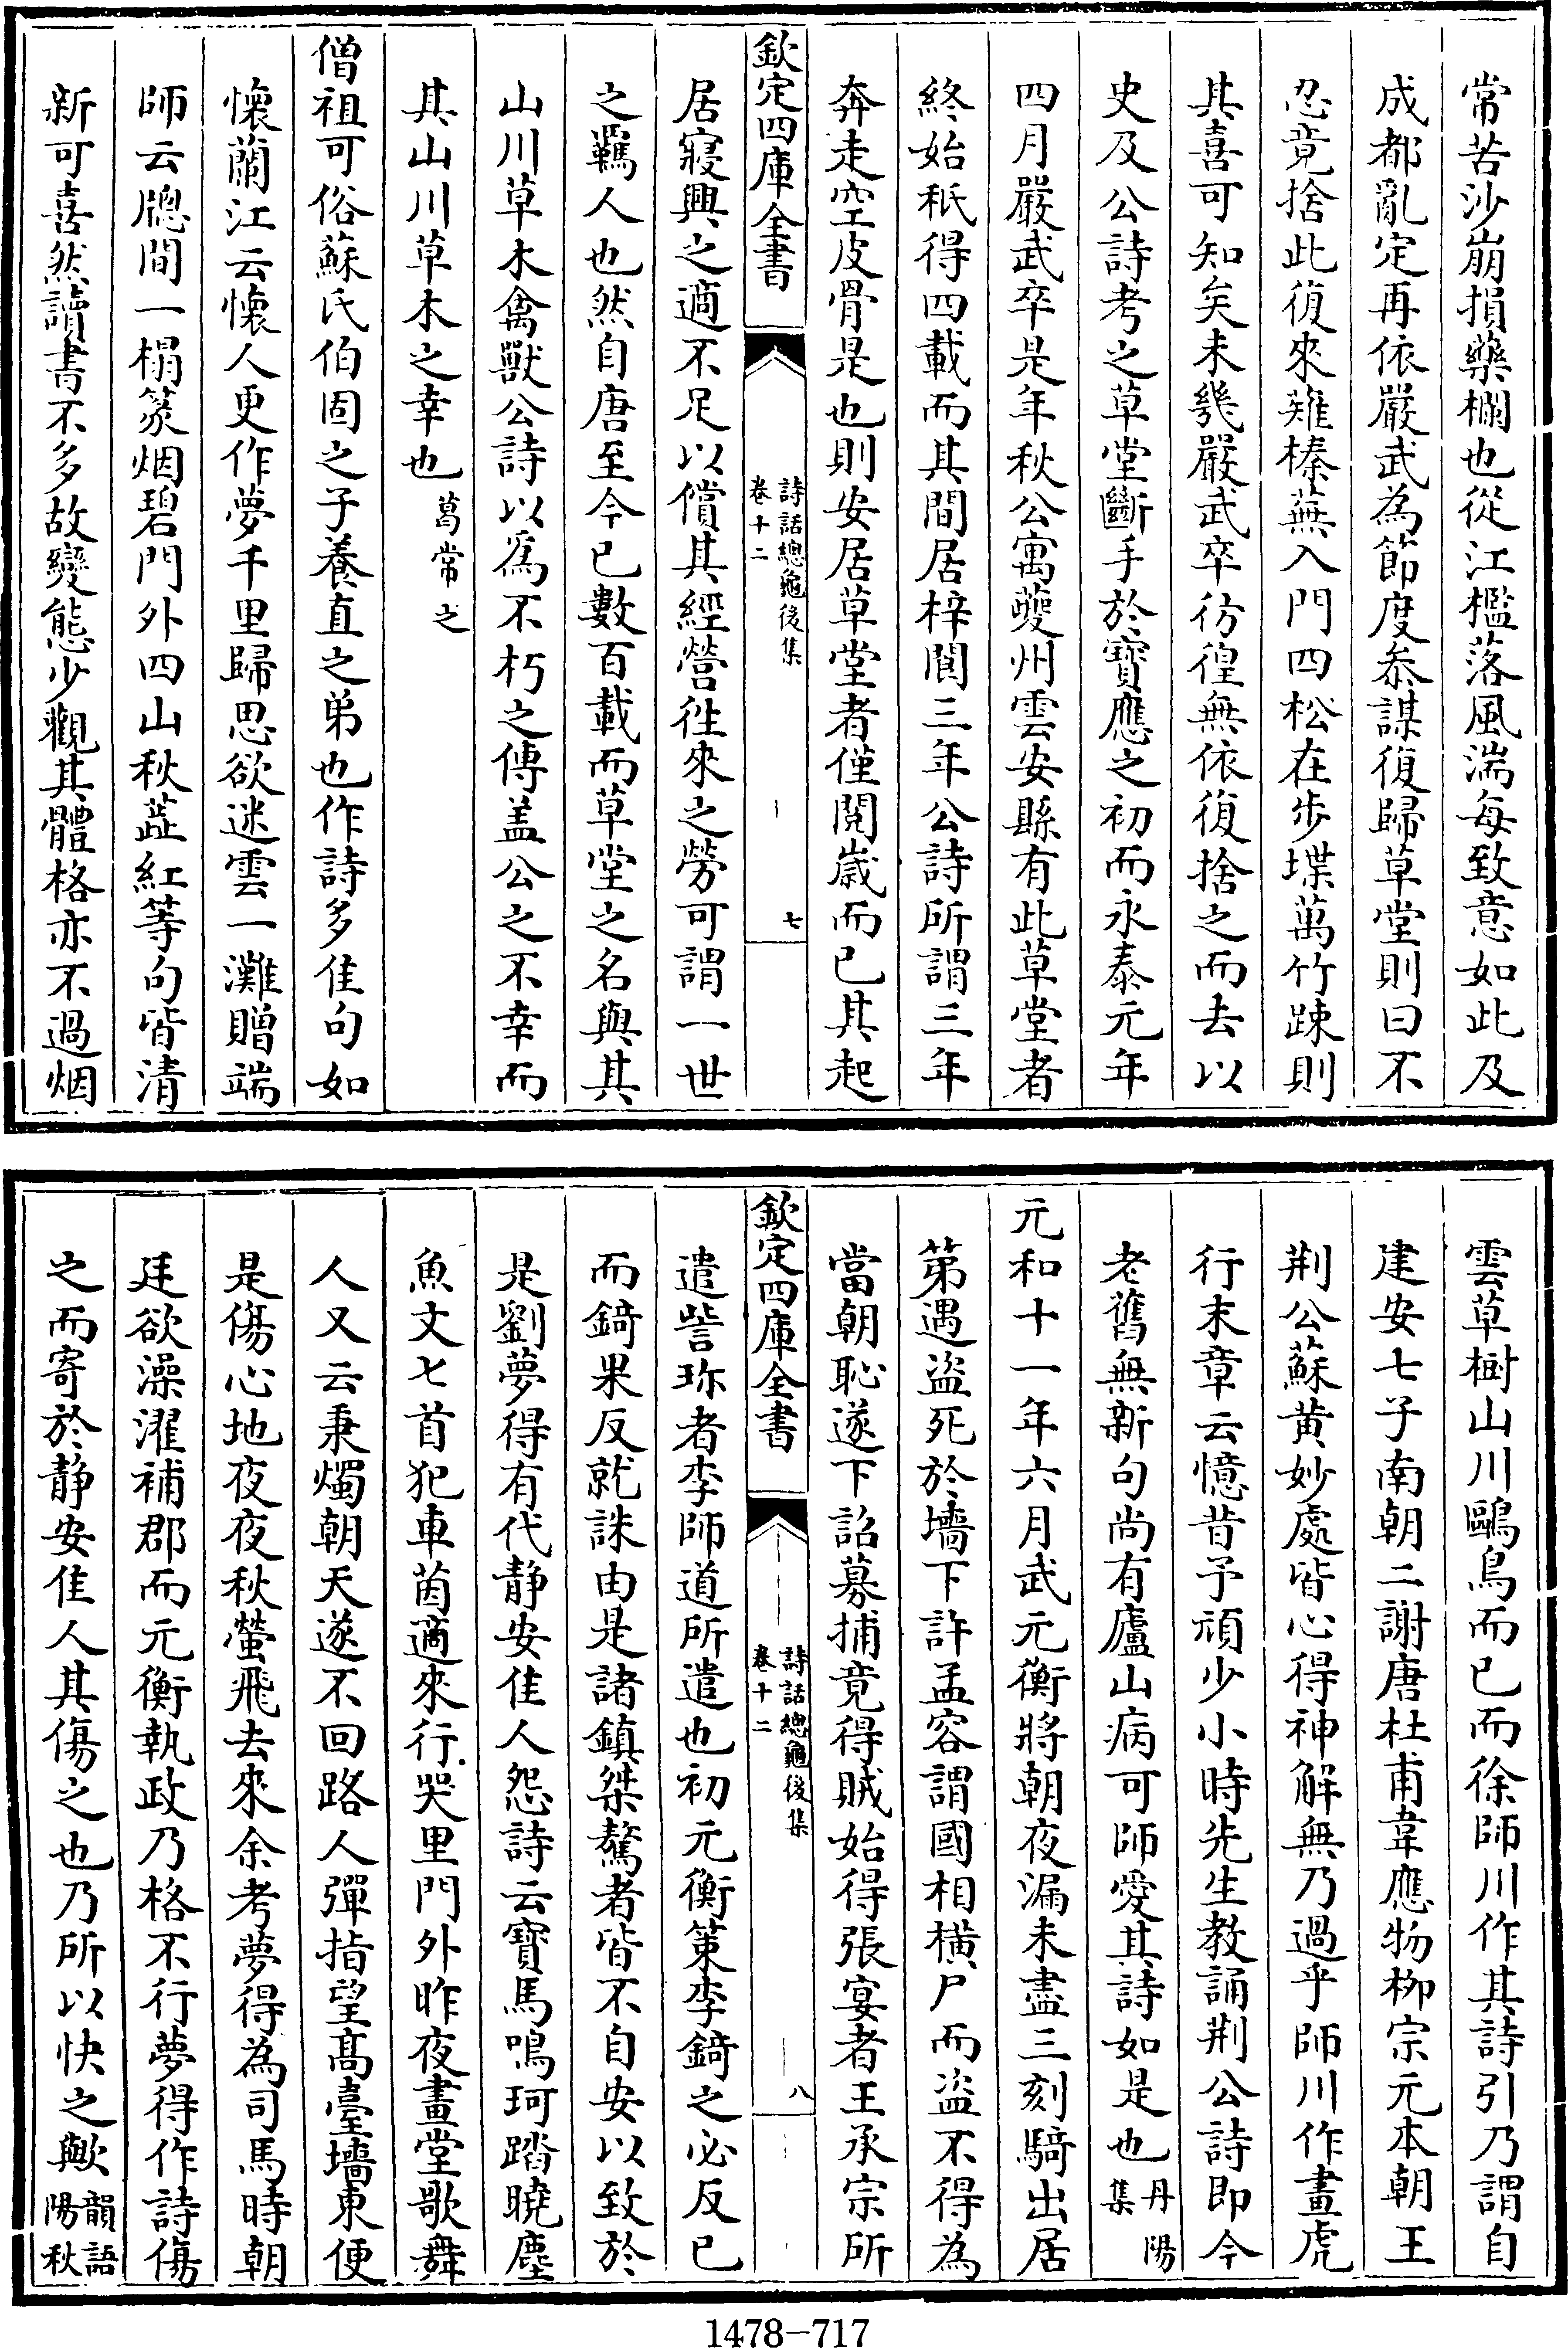 常苦沙崩損藥欄也從江檻落風湍每致意如此及
成都亂定再依嚴武為節度叅謀復歸草堂則曰不
忍竟捨此復來薙榛蕪入門四松在步堞萬竹踈則
其喜可知矣未幾嚴武卒彷徨無依復捨之而去以
史及公詩考之草堂斷手於寶應之初而永泰元年
四月嚴武卒是年秋公寓夔州雲安縣有此草堂者
終始秖得四載而其間居梓閬三年公詩所謂三年
奔走空皮骨是也則安居草堂者僅閱歲而已其起
欽定四庫全書
詩話總龜後集
卷十二
七
居寢興之適不足以償其經營徃來之勞可謂一世
之羈人也然自唐至今已數百載而草堂之名與其
山川草木禽獸公詩以爲不朽之傳盖公之不幸而
其山川草木之幸也葛常之
僧祖可俗蘇氏伯固之子養直之弟也作詩多佳句如
懷蘭江云懷人更作夢千里歸思欲迷雲一灘贈端
師云牕間一榻篆烟碧門外四山秋蘂紅等句皆清
新可喜然讀書不多故變態少觀其體格亦不過烟
雲草樹山川鷗鳥而已而徐師川作其詩引乃謂自
建安七子南朝二謝唐杜甫韋應物栁宗元本朝王
荆公蘇黄妙處皆心得神解無乃過乎師川作畫虎
行末章云憶昔予頑少小時先生教誦荆公詩即今
老舊無新句尚有廬山病可師愛其詩如是也丹陽
集
元和十一年六月武元衡將朝夜漏未盡三刻騎出居
第遇盗死於墻下許孟容謂國相横尸而盗不得為
當朝恥遂下詔募捕竟得賊始得張宴者王承宗所
欽定四庫全書
詩話總龜後集
卷十二
八
遣訾珎者李師道所遣也初元衡策李錡之必反已
而錡果反就誅由是諸鎮桀驁者皆不自安以致於
是劉夢得有代静安佳人怨詩云寶馬鳴珂踏曉塵
魚文匕首犯車茵適來行哭里門外昨夜畫堂歌舞
人又云秉燭朝天遂不回路人彈指望髙臺墻東便
是傷心地夜夜秋螢飛去來余考夢得為司馬時朝
廷欲澡濯補郡而元衡執政乃格不行夢得作詩傷
之而寄於静安佳人其傷之也乃所以快之歟韻語
陽秋
1478-717